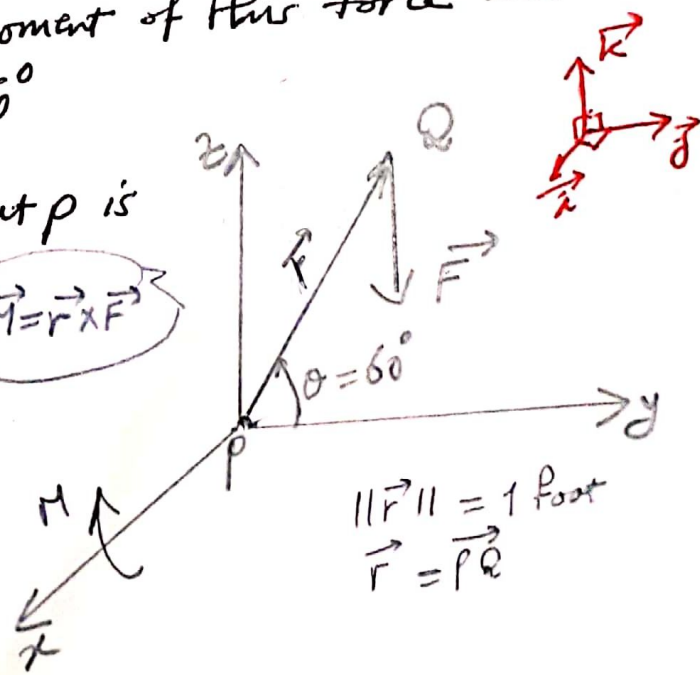 oment of this force
6°
ut p is
M⃗ = r⃗ × F⃗
k⃗
j⃗
i⃗
z
Q
r⃗
F⃗
θ = 60°
y
P
M
||r⃗|| = 1 foot
r⃗ = PQ⃗
x